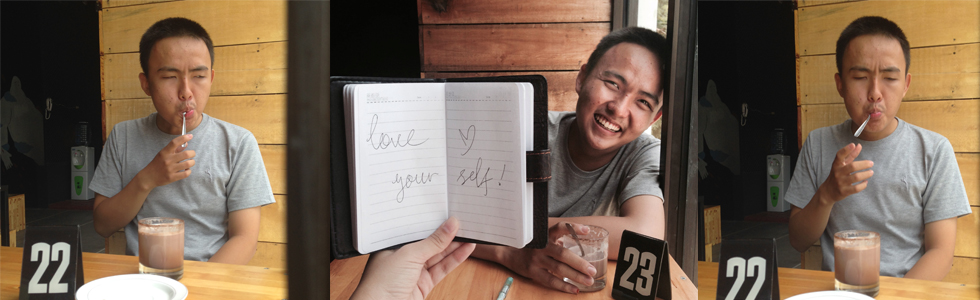 22
love ♡
your self!
23
22